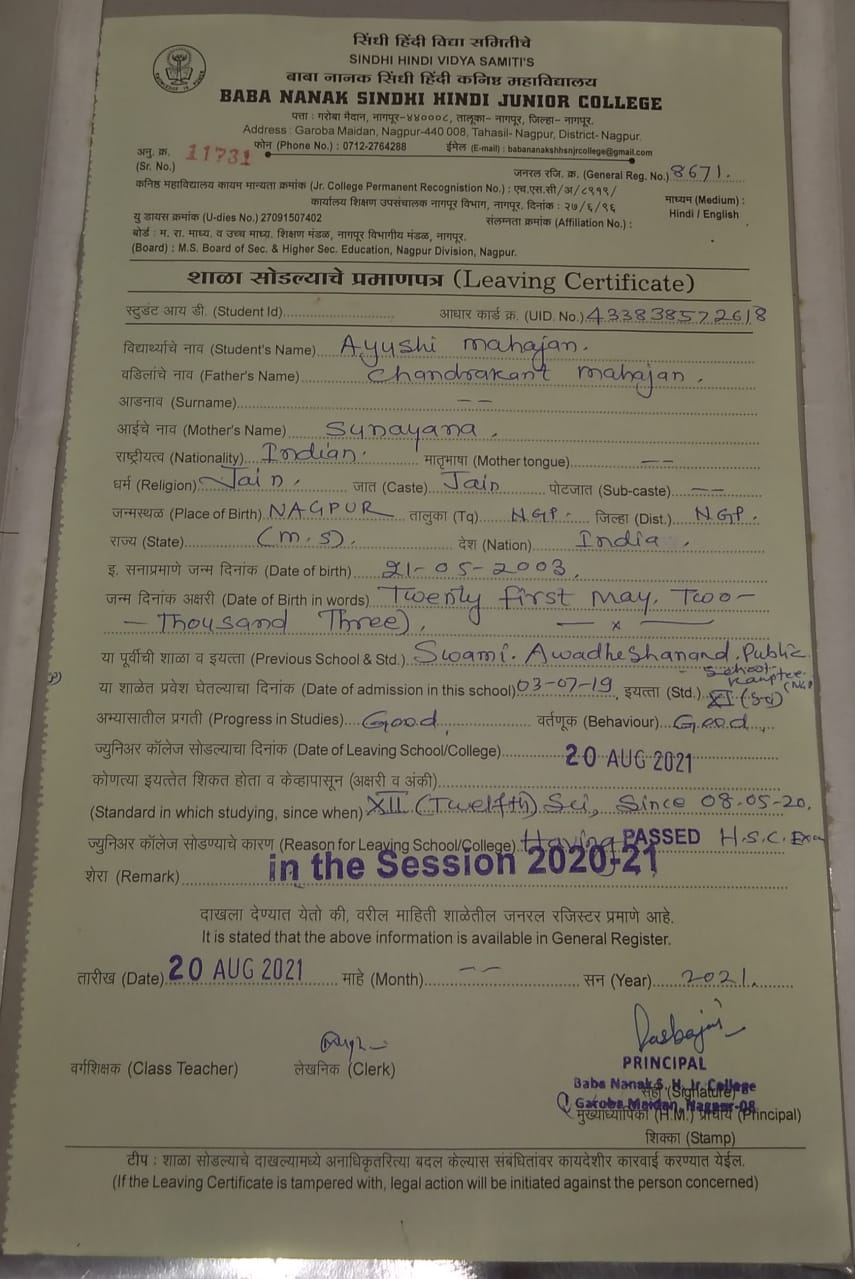 सिंधी हिंदी विद्या समितीचे
SINDHI HINDI VIDYA SAMITI'S
बाबा नानक सिंधी हिंदी कनिष्ठ महाविद्यालय
BABA NANAK SINDHI HINDI JUNIOR COLLEGE
पत्ता : गरोबा मैदान, नागपूर-४४०००८, तालूका- नागपूर, जिल्हा- नागपूर.
Address : Garoba Maidan, Nagpur-440 008, Tahasil- Nagpur, District- Nagpur.
अनु. क्र. 11731 फोन (Phone No.) : 0712-2764288 ईमेल (E-mail) : babananakshhsnjrcollege@gmail.com
(Sr. No.)
जनरल रजि. क्र. (General Reg. No.) 8671.
कनिष्ठ महाविद्यालय कायम मान्यता क्रमांक (Jr. College Permanent Recognistion No.) : एच.एस.सी/अ/८९१९/
कार्यालय शिक्षण उपसंचालक नागपूर विभाग, नागपूर. दिनांक : २७/६/९६ माध्यम (Medium) :
Hindi / English
यु डायस क्रमांक (U-dies No.) 27091507402 संलग्नता क्रमांक (Affiliation No.) :
बोर्ड : म. रा. माध्य. व उच्च माध्य. शिक्षण मंडळ, नागपूर विभागीय मंडळ, नागपूर.
(Board) : M.S. Board of Sec. & Higher Sec. Education, Nagpur Division, Nagpur.
शाळा सोडल्याचे प्रमाणपत्र (Leaving Certificate)
स्टुडंट आय डी. (Student Id) आधार कार्ड क्र. (UID. No.) 433838572618
विद्यार्थ्याचे नाव (Student's Name) Ayushi mahajan.
वडिलांचे नाव (Father's Name) Chandrakant mahajan.
आडनाव (Surname) --
आईचे नाव (Mother's Name) Sunayana.
राष्ट्रीयत्व (Nationality) Indian. मातृभाषा (Mother tongue) --
धर्म (Religion) Jain. जात (Caste) Jain पोटजात (Sub-caste) --
जन्मस्थळ (Place of Birth) NAGPUR तालुका (Tq) NGP. जिल्हा (Dist.) NGP.
राज्य (State) (M.S). देश (Nation) India.
इ. सनाप्रमाणे जन्म दिनांक (Date of birth) 21-05-2003.
जन्म दिनांक अक्षरी (Date of Birth in words) Twenty first May. Two-
- Thousand Three). — x —
या पूर्वीची शाळा व इयत्ता (Previous School & Std.) Swami. Awadheshanand. Public
School. Kamptee (NGP)
या शाळेत प्रवेश घेतल्याचा दिनांक (Date of admission in this school) 03-07-19, इयत्ता (Std.) XI (Sci)
अभ्यासातील प्रगती (Progress in Studies) Good, वर्तणूक (Behaviour) Good,
ज्युनिअर कॉलेज सोडल्याचा दिनांक (Date of Leaving School/College) 20 AUG 2021
कोणत्या इयत्तेत शिकत होता व केव्हापासून (अक्षरी व अंकी)
(Standard in which studying, since when) XII (Twelfth) Sci, Since 08-05-20.
ज्युनिअर कॉलेज सोडण्याचे कारण (Reason for Leaving School/College) Having PASSED H.S.C. Exa
in the Session 2020-21
शेरा (Remark)
दाखला देण्यात येतो की, वरील माहिती शाळेतील जनरल रजिस्टर प्रमाणे आहे.
It is stated that the above information is available in General Register.
तारीख (Date) 20 AUG 2021 माहे (Month) -- सन (Year) 2021.
वर्गशिक्षक (Class Teacher) लेखनिक (Clerk)
PRINCIPAL
Baba Nanak S. H. Jr. College
सही (Signature)
Garoba Maidan, Nagpur-08
मुख्याध्यापिका (H.M.) प्राचार्य (Principal)
शिक्का (Stamp)
टीप : शाळा सोडल्याचे दाखल्यामध्ये अनाधिकृतरित्या बदल केल्यास संबंधितांवर कायदेशीर कारवाई करण्यात येईल.
(If the Leaving Certificate is tampered with, legal action will be initiated against the person concerned)